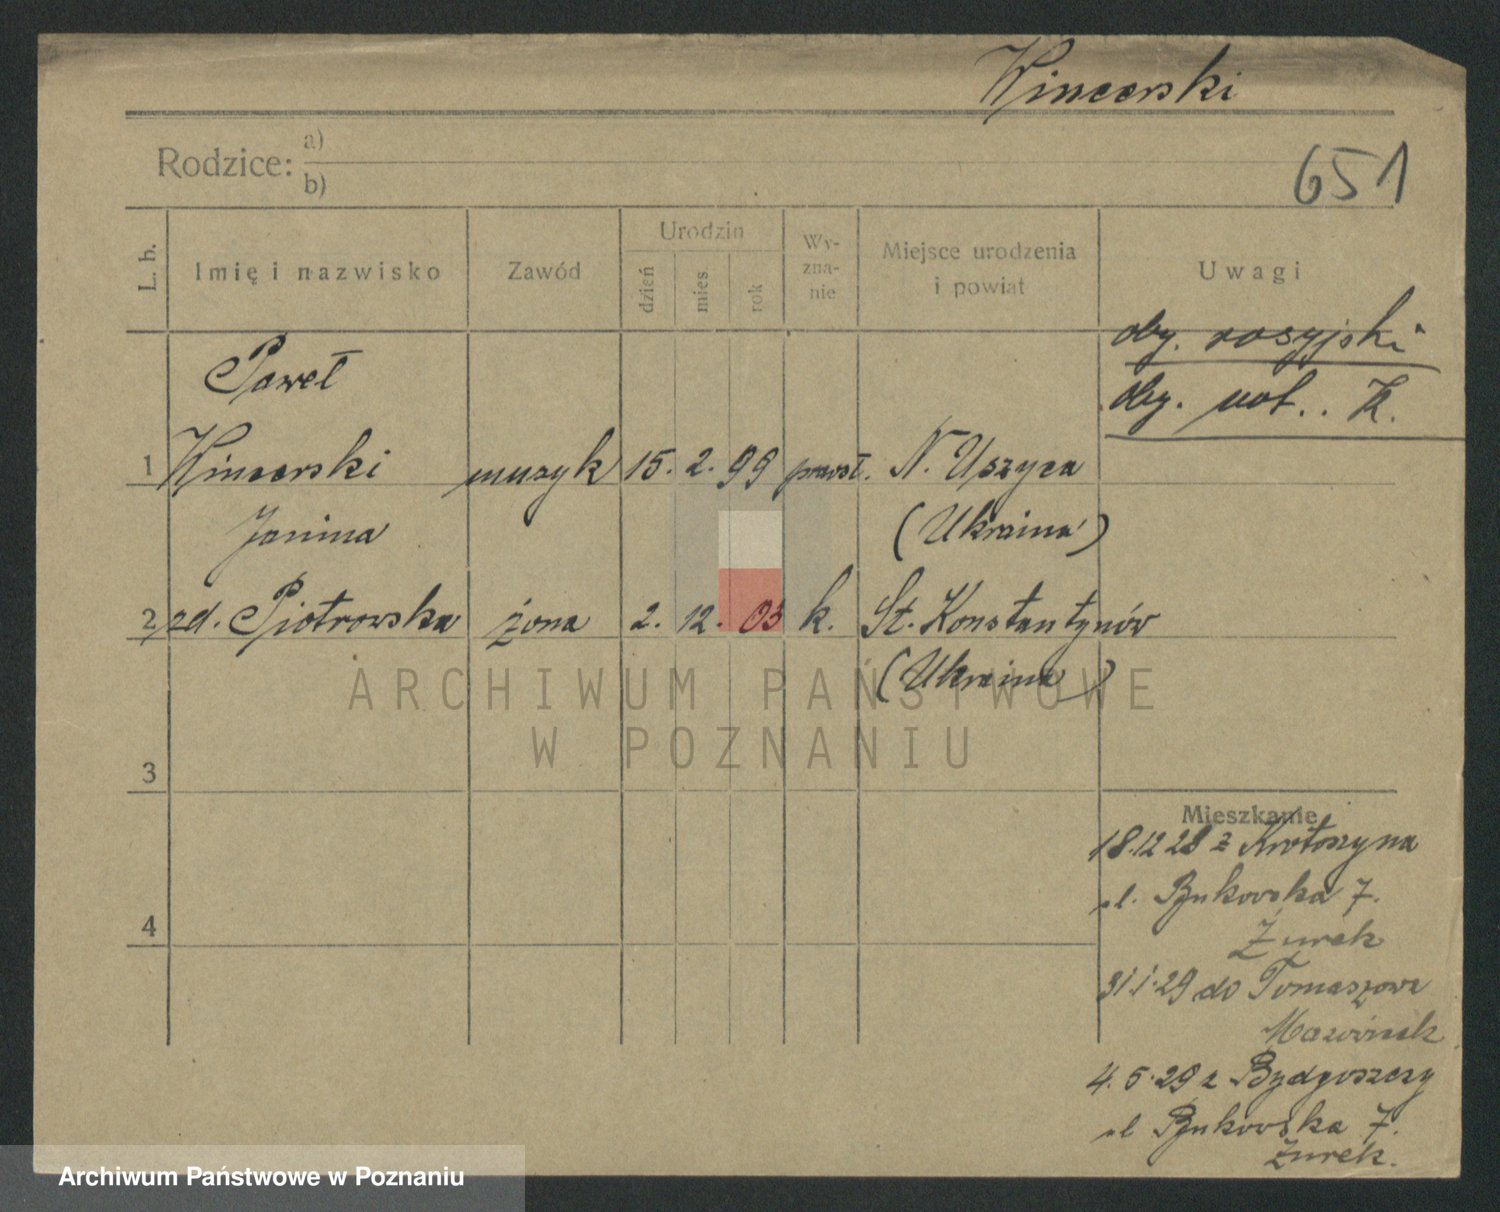 Wincerski
Rodzice: a)
b)
651
L. b.
Imię i nazwisko
Zawód
Urodzin
dzień
mies.
rok
Wy-
zna-
nie
Miejsce urodzenia
i powiat
Uwagi
oby. rosyjski
oby. K.
Paweł
1 Wincerski muzyk 15. 2. 99 prawsł. N. Uszyca
(Ukraina)
Janina
2 zd. Piotrowska żona 2. 12. 03 k. St. Konstantynów
(Ukraina)
3
4
Mieszkanie
18.12 28 z Krotoszyna
ul. Bukowska 7.
Żurek
31.1.29 do Tomaszowa
4.5.29 z Bydgoszczy
ul Bukowska 7.
Żurek.
ARCHIWUM PAŃSTWOWE
W POZNANIU
Archiwum Państwowe w Poznaniu